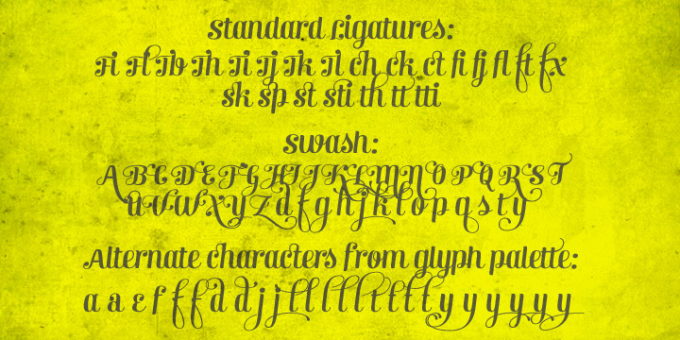 Standard Ligatures:
Fi Fl Tb Th Ti Tj Tk Tl ch ck ct fi fj fl ft fx
sk sp st sti th tt tti
Swash:
A B C D E F G H I J K L M N O P Q R S T
U V W X Y Z d f g h j k l o p q s t y
Alternate characters from glyph palette:
a a ε f f f d d j j l l l l l t l l l y y y y y y